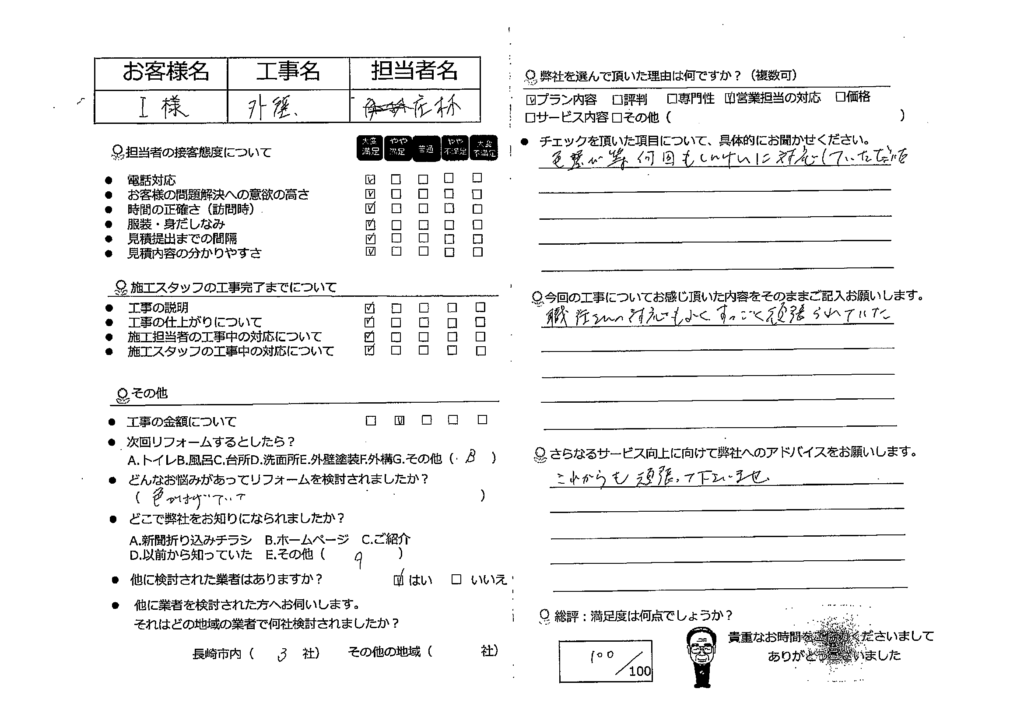 お客様名 工事名 担当者名
I様 外壁 庄林
担当者の接客態度について
大変満足 やや満足 普通 やや不満足 大変不満足
● 電話対応 ☑ □ □ □ □
● お客様の問題解決への意欲の高さ ☑ □ □ □ □
● 時間の正確さ（訪問時） ☑ □ □ □ □
● 服装・身だしなみ ☑ □ □ □ □
● 見積提出までの間隔 ☑ □ □ □ □
● 見積内容の分かりやすさ ☑ □ □ □ □
施工スタッフの工事完了までについて
● 工事の説明 ☑ □ □ □ □
● 工事の仕上がりについて ☑ □ □ □ □
● 施工担当者の工事中の対応について ☑ □ □ □ □
● 施工スタッフの工事中の対応について ☑ □ □ □ □
その他
● 工事の金額について □ ☑ □ □ □
● 次回リフォームするとしたら？
A.トイレB.風呂C.台所D.洗面所E.外壁塗装F.外構G.その他（ B ）
● どんなお悩みがあってリフォームを検討されましたか？
（ 色がはげていて ）
● どこで弊社をお知りになられましたか？
A.新聞折り込みチラシ B.ホームページ C.ご紹介
D.以前から知っていた E.その他（ ）
● 他に検討された業者はありますか？ ☑はい □ いいえ
● 他に業者を検討された方へお伺いします。
それはどの地域の業者で何社検討されましたか？
長崎市内（ 3 社） その他の地域（ 社）
弊社を選んで頂いた理由は何ですか？（複数可）
☑プラン内容 □評判 □専門性 ☑営業担当の対応 □価格
□サービス内容 □その他（ ）
● チェックを頂いた項目について、具体的にお聞かせください。
何回も に対応していただ
今回の工事についてお感じ頂いた内容をそのままご記入お願いします。
職 さんの対応もよくすっごく頑張られていた
さらなるサービス向上に向けて弊社へのアドバイスをお願いします。
これからも頑張って下さいませ
総評：満足度は何点でしょうか？
100/100
貴重なお時間を くださいまして
ありがとうございました